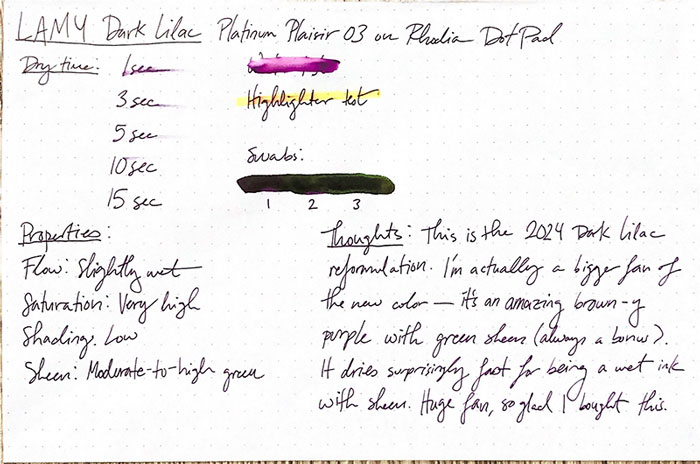 LAMY Dark Lilac Platinum Plaisir 03 on Rhodia DotPad
Dry time: 1 sec
3 sec
5 sec
10 sec
15 sec
Highlighter test
Swabs:
1 2 3
Properties:
Flow: Slightly wet
Saturation: Very high
Shading: Low
Sheen: Moderate-to-high green
Thoughts: This is the 2024 Dark Lilac
reformulation. I'm actually a bigger fan of
the new color — it's an amazing brown-y
purple with green sheen (always a bonus).
It dries surprisingly fast for being a wet ink
with sheen. Huge fan, so glad I bought this.